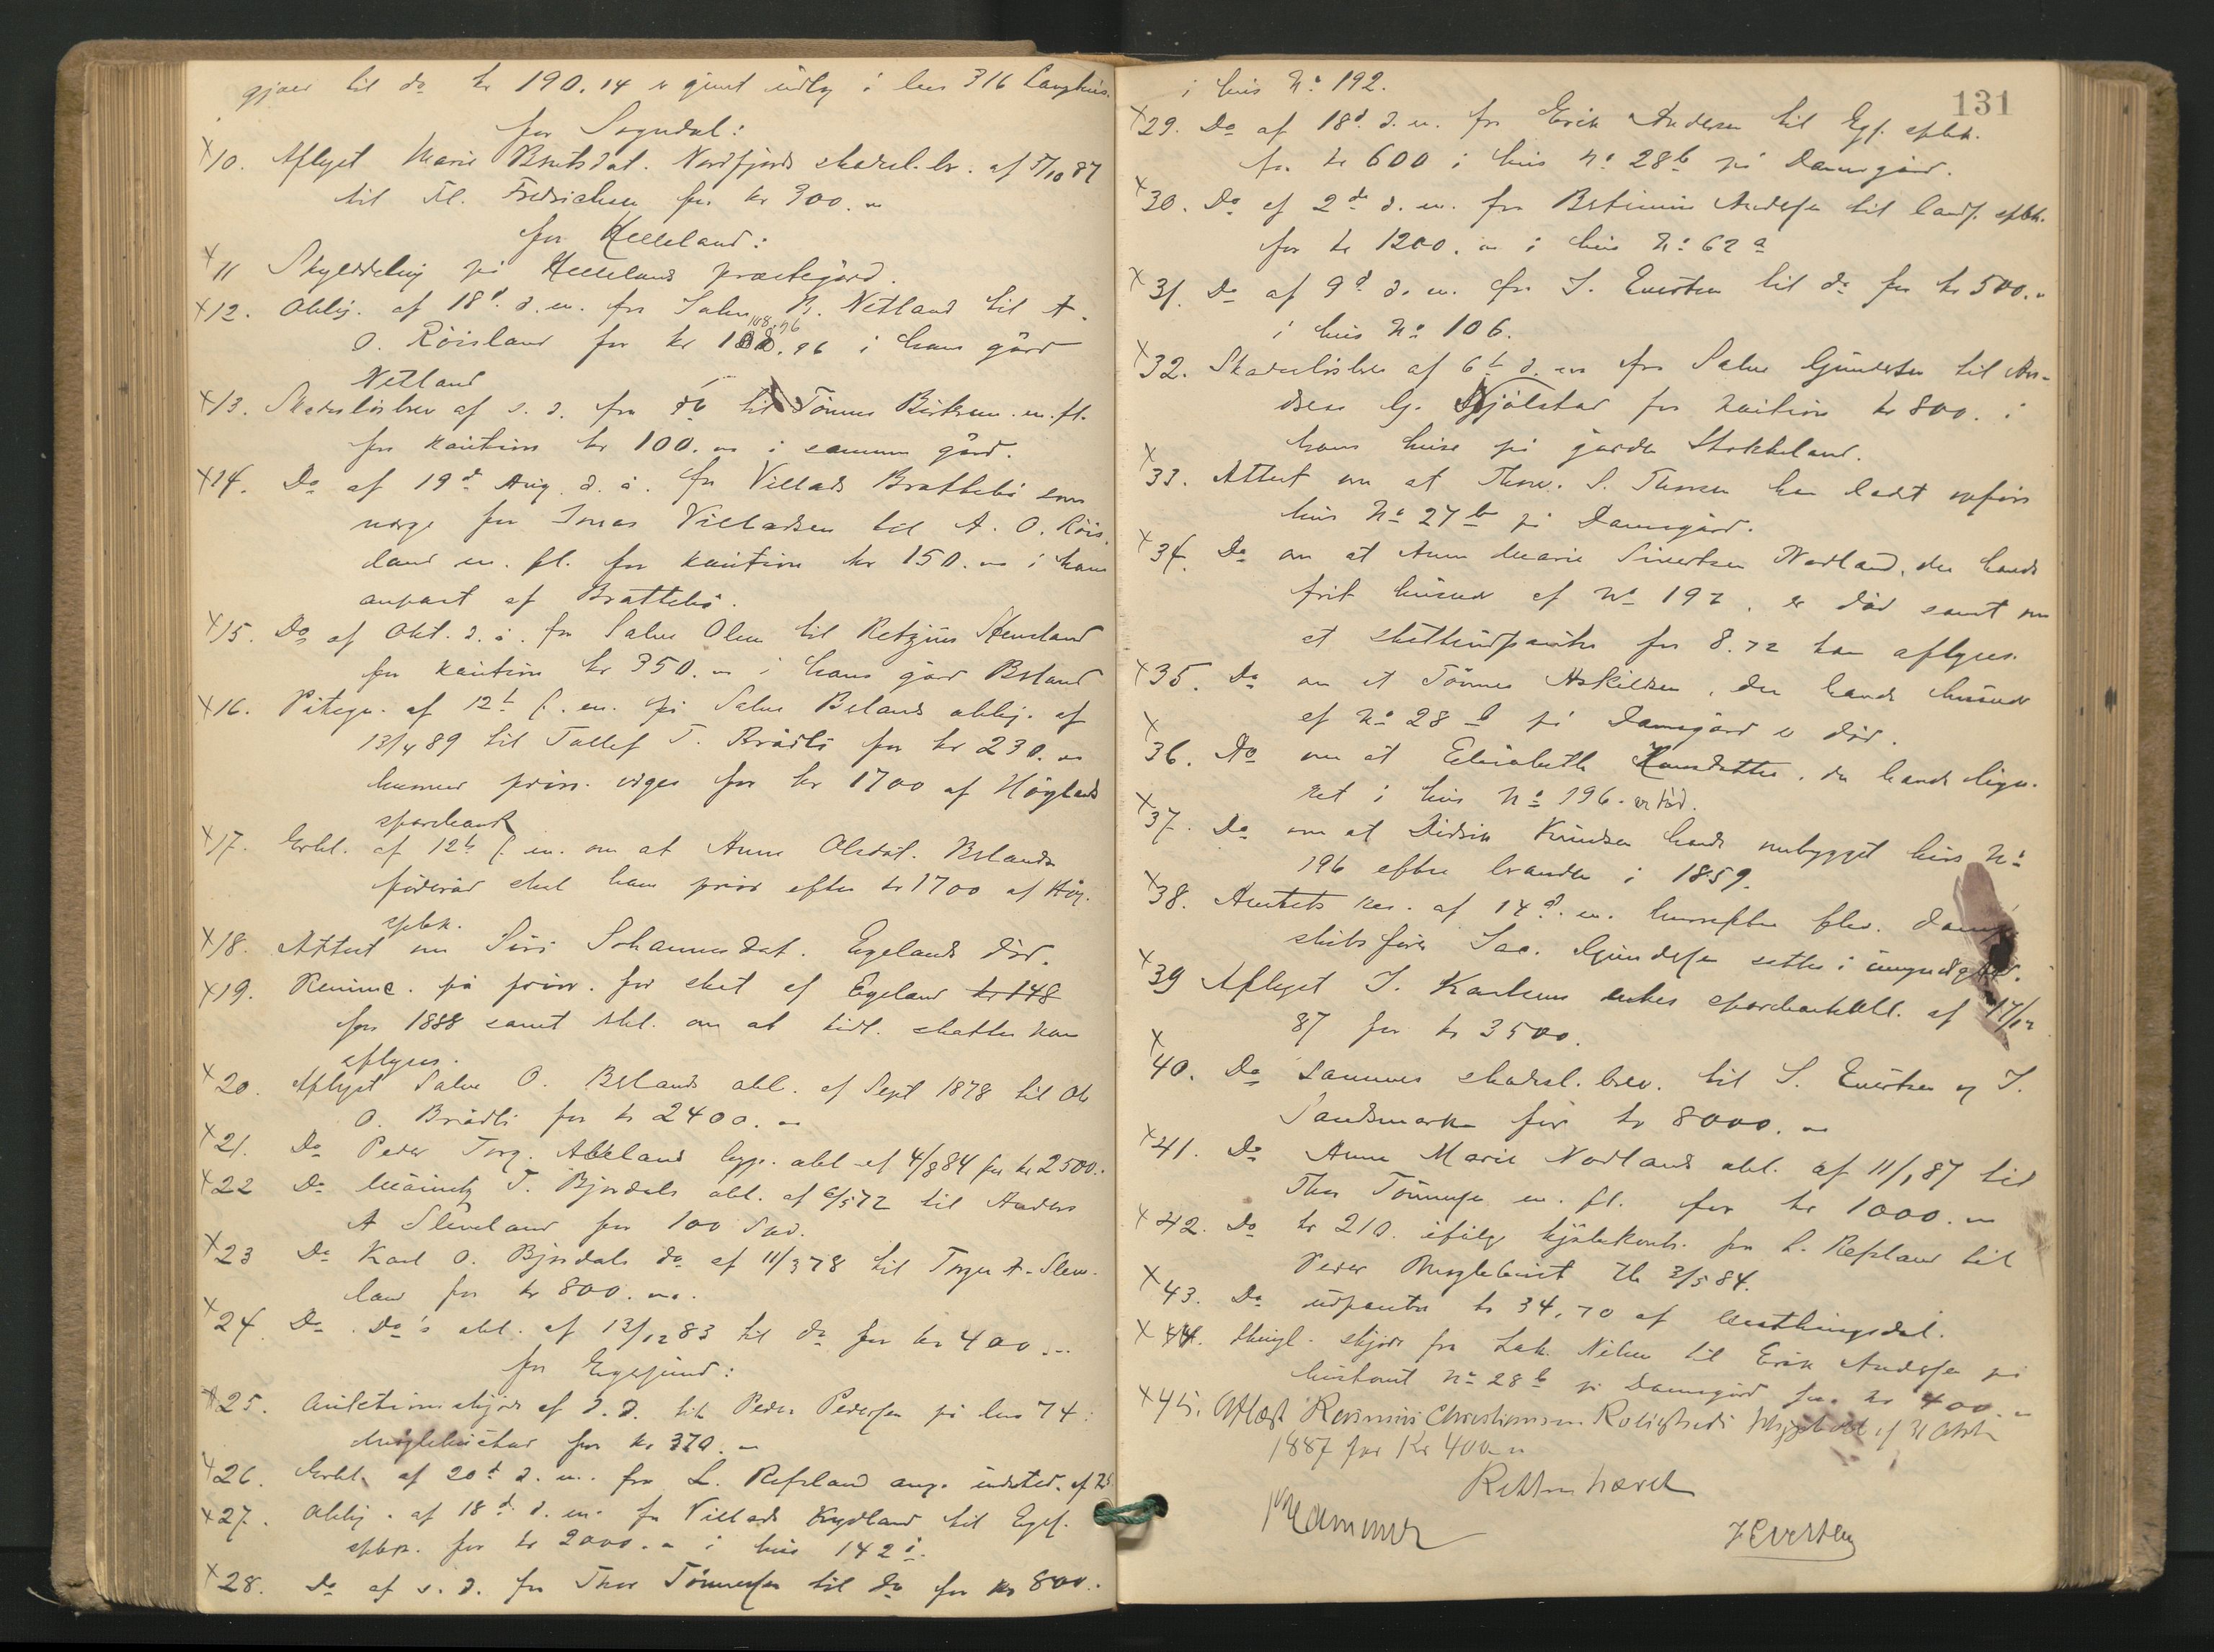 gjæld til do kr 190.14 er gjort udlæg i hus 316 Langhus.
for Sogndal:
10. Aflyst Marie Berntsdat. Nordfjords skadesl.br. af 5/10 87
til Fl. Fredrichsen for kr 300.
for Helleland:
11 Skylddeling på Hellelands præstegård.
12. Oblig. af 18d. d.m. fra Salve N. Netland til A.
O. Röisland for kr 108.96 i hans gård
Netland
13. Skadesløsbrev af s. d. fra do til Tönnes Birkrem m. fl.
for kaution kr 100. i samme gård.
14. Do af 19d Aug. d. å. fra Villads Brattebö som
værge for Jonas Villadsen til A. O. Röis
land m. fl. for kaution kr 150. i hans
anpart af Brattebö.
15. Do af Okt. d. å. fra Salve Olsen til Retzius
for kaution kr 350. i hans gård Bsland
16. Påtegn. af 12te f. m. på Salve Bslands oblig. af
13/4 89 til Tollef T. Brådli for kr 230.
hvorved prior. viges for kr 1700 af Höglands
sparebank
17. Erkl. af 12te f. m. om at Anne Olsdat. Bslands
föderåd skal have prior efter kr 1700 af Hög.
spbk.
18. Attest om Siri Johannesdat. Egelands död.
19. på for skat af Egeland kr 148
for 1888 samt erkl. om at tidl. skatter kan
aflyses.
20. Aflyst Salve O. Bslands obl. af Sept 1878 til Ole
O. Brådli for kr 2400.
21. Do Peder Torg. Abelands hyp. obl af 4/8 84 for kr 2500.
22 Do Mauritz T. Bjordals obl. af 6/5 72 til Anders
A Sleveland for 100 Spd.
23 Do Karl O. Bjordals do af 11/3 78 til Torger A. Sleve-
land for kr 800.
24. Do Do's obl. af 13/12 83 til do for kr 400
for Egersund:
25. Auktionsskjöde af d. d. til Peder Pedersen på hus 74
for kr 370.
26. Erkl. af 20d d. m. fra L. Refsland ang. indsted. af
27. Oblig. af 18d d. m. fra Villads Rydland til Egs.
spbk. for kr 2000. i hus 142 i.
28. Do af s. d. fra Thor Tönnesen til do for kr 800.
131
i hus No 192.
29. Do af 18d. d. m. fra Erik Andersen til Egs. spbk.
for kr 600 i hus No 28b på Damsgård.
30. Do af 2d d. m. fra Andersen til samme spbk.
for kr 1200. i hus No 62a
31. Do af 9d d. m. fra J. Evertsen til do for kr 500.
i hus No 106.
32. Skadeslösbrev af 6te d. m fra Salve Gundersen til An-
dreas G. Hjölstad for kaution kr 800. i
hans huse på gården Stokkeland.
33. Attest om at Thorv. S. Thorsen har ladt opföre
hus No 27b på Damsgård.
34. Do om at Anne Marie Sivertsen Nodland, der havde
frit husvær af No 192, er död samt om
at skatteudpantn for 8.72 kan aflyses.
35. Do om at Tönnes Askildsen, der havde husvær
af No 28b på Damsgård er död.
36. Do om at Elisabeth Hansdatter, der havde lign.
ret i hus No 196. er död.
37. Do om at Didrik Knudsen havde nybygget hus No
196 efter branden i 1859.
38. Amtets res. af 14d. m. hvorefter fhv. damp
skibsförer Jac. Gundersen settes i
39 Aflyst J. Karlsens enkes sparebankobl. af 17/12
87 for kr 3500.
40. Do Sammes skadesl. brev. til S. Evertsen og J.
Sandsmark for kr 8000.
41. Do Anne Marie Nodlands obl. af 11/1 87 til
Thor Tönnesen m. fl. for kr 1000.
42. Do kr 210. ifölge kjöbekontr. fra L. Refsland til
Peder 3/5 84.
43. Do udpantn kr 34,70 af
44. skjöde fra Zak. Nilsen til Erik Andersen på
hustomt No 28b på Damsgård for kr 400.
45. Aflæst Rasmus Christiansen af 31 Oktbr
1887 for Kr 400
Retten hævet
J Evertsen